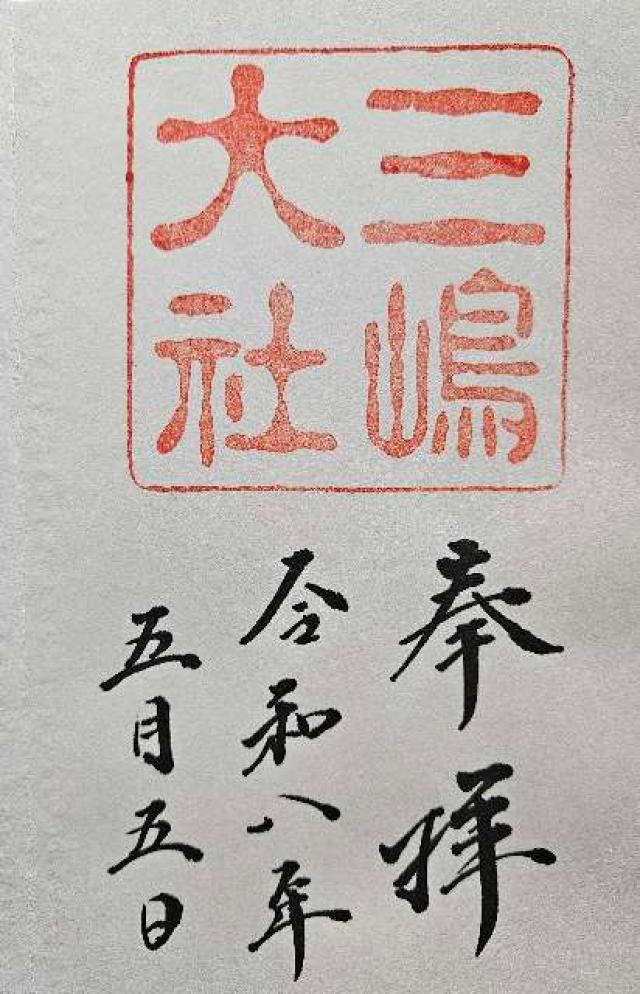 三嶋
大社
奉拝
令和八年
五月五日